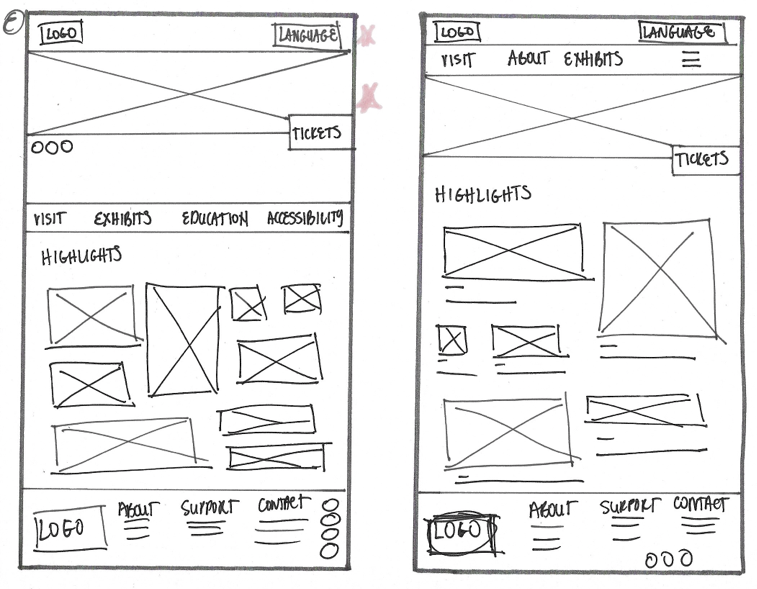 E
LOGO LANGUAGE
TICKETS
VISIT EXHIBITS EDUCATION ACCESSIBILITY
HIGHLIGHTS
LOGO ABOUT SUPPORT CONTACT
LOGO LANGUAGE
VISIT ABOUT EXHIBITS
TICKETS
HIGHLIGHTS
LOGO ABOUT SUPPORT CONTACT